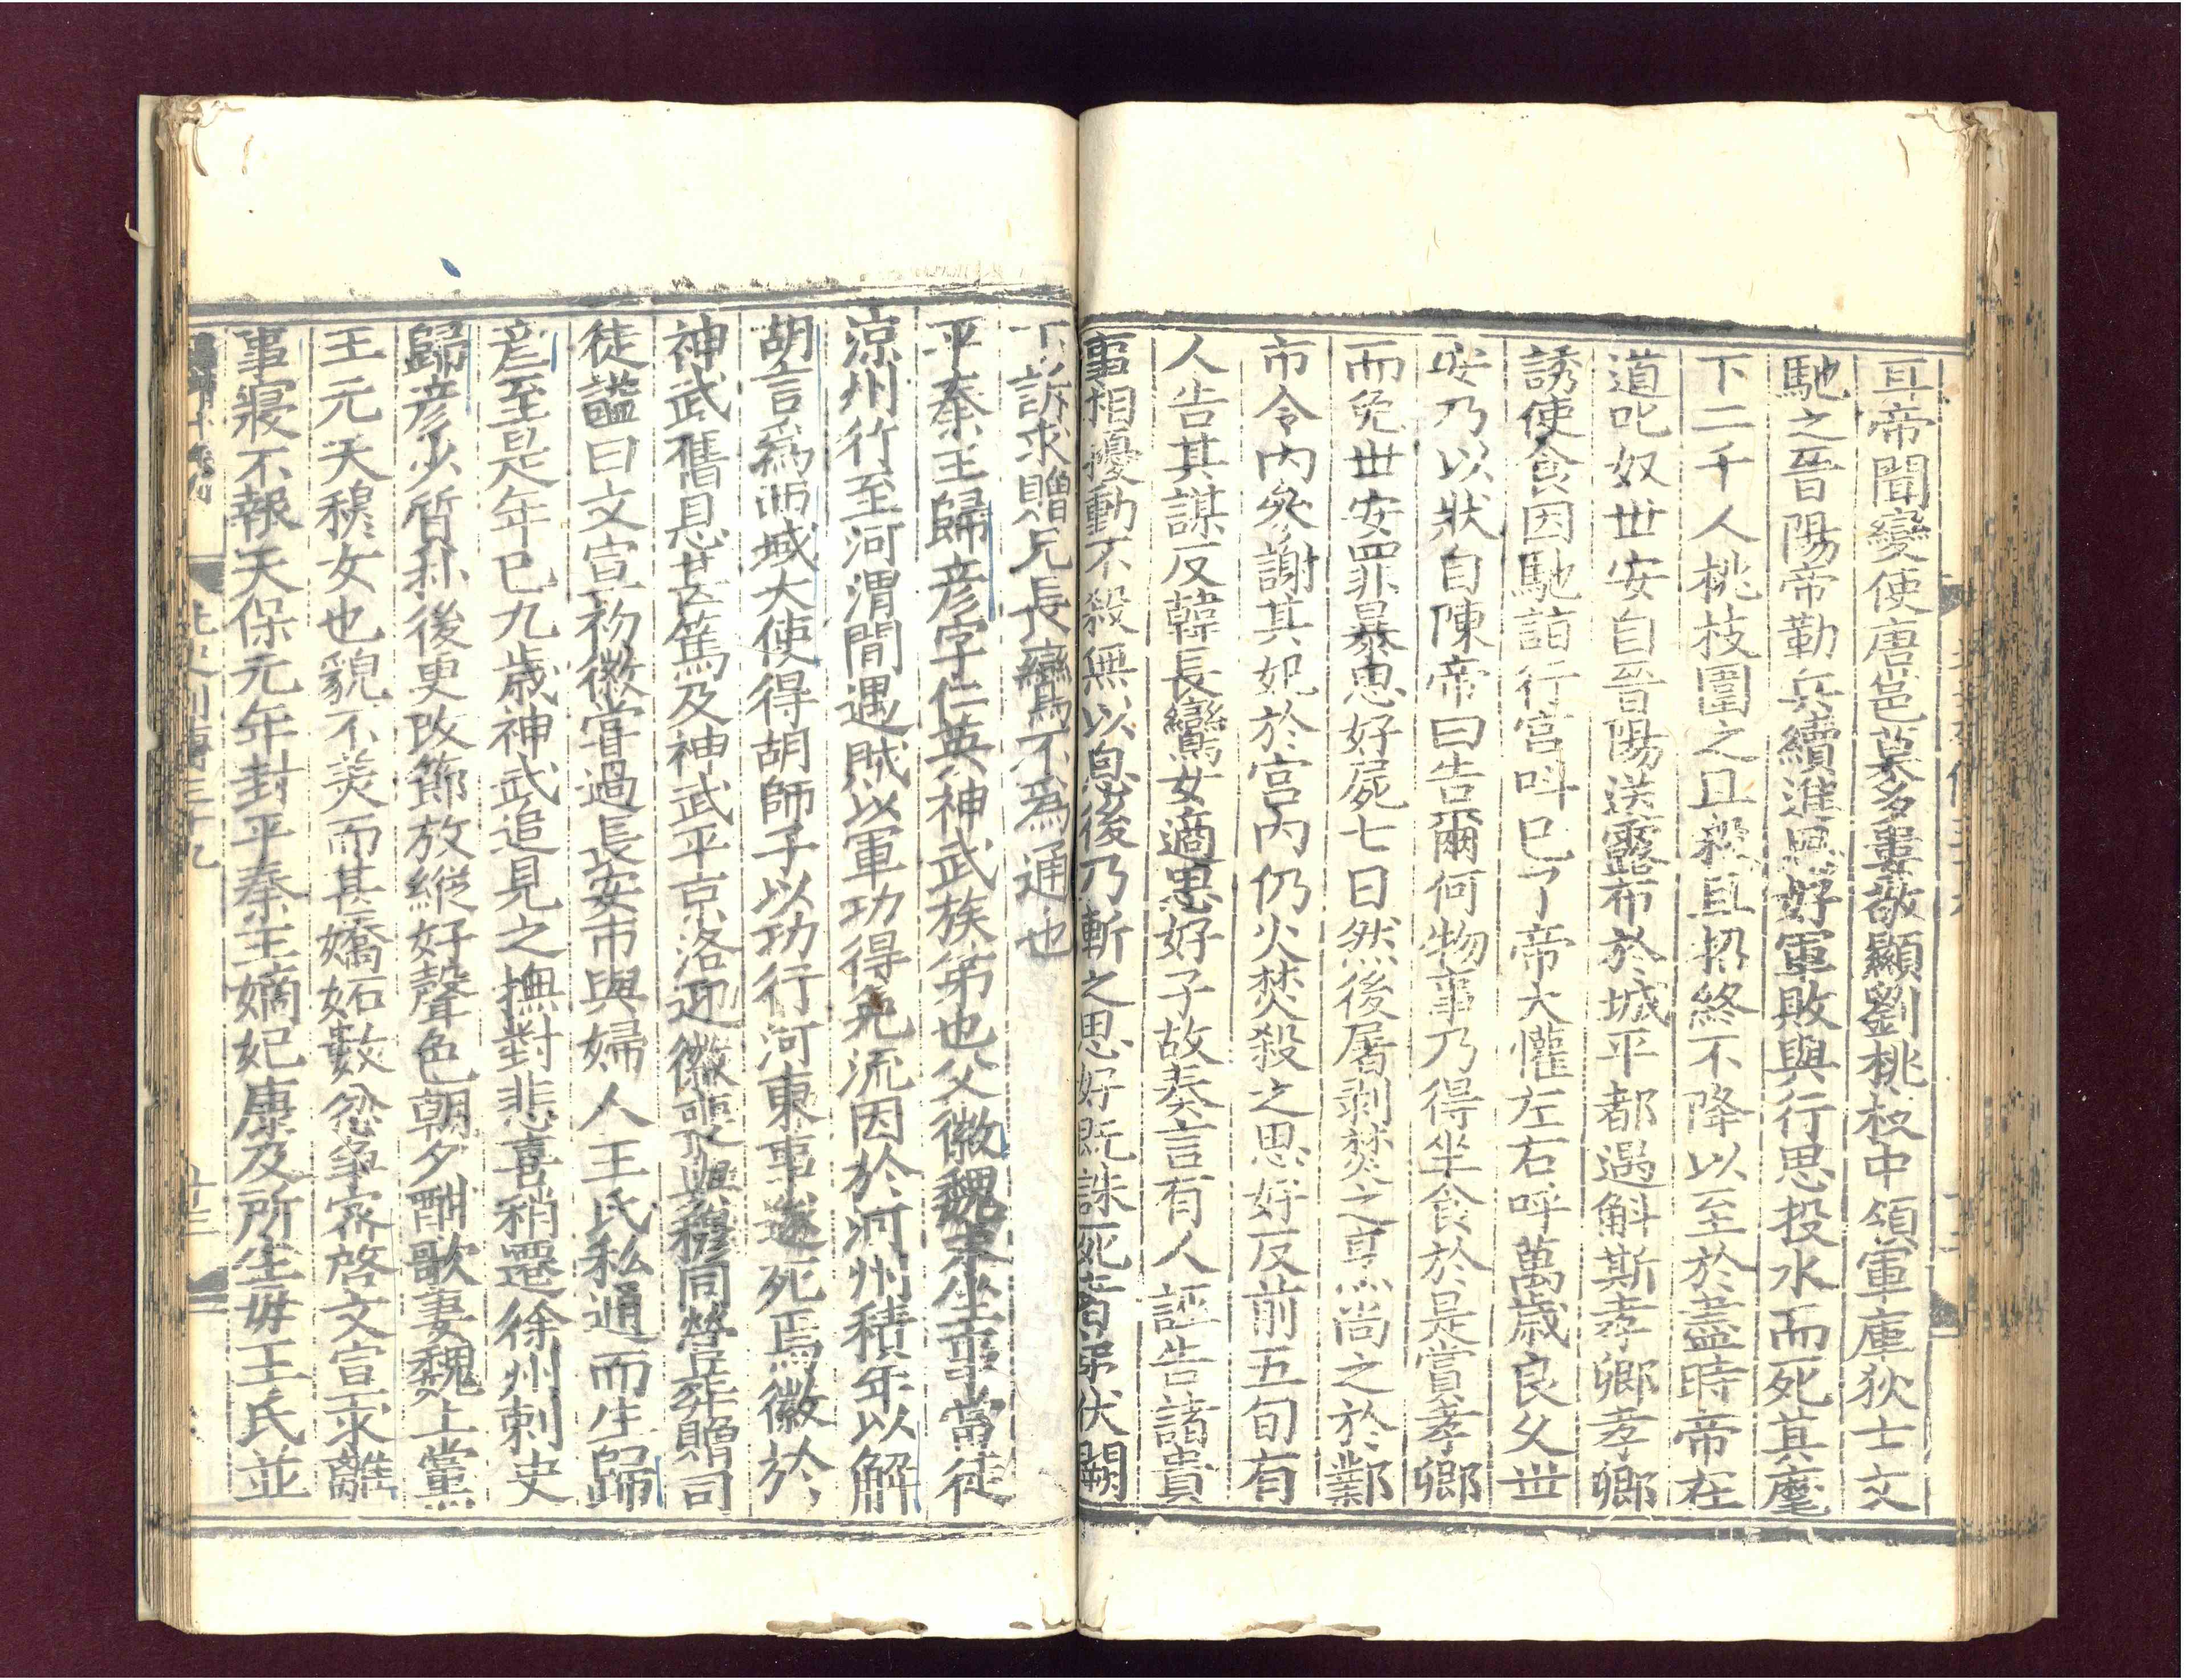 耳帝聞變使唐邕莫多婁敬顯劉桃枝中領軍庫狄士文
馳之晉陽帝勒兵續進思好軍敗與行思投水而死其麾
下二千人桃枝圍之且殺且招終不降以至於盡時帝在
道叱奴世安自晉陽送露布於城平都遇斛斯孝卿孝卿
誘使食因馳詣行宮呌巳了帝大懽左右呼萬歲良久世
安乃以狀自陳帝曰告爾何物事乃得坐食於是賞孝卿
而免世安罪暴思好屍七日然後屠剥焚之烹尚之於鄴
市令内參謝其妃於宮内仍火焚殺之思好反前五旬有
人告其謀反韓長鸞女適思好子故奏言有人誣告諸貴
事相擾動不殺無以息後乃斬之思好既誅死者弟伏闕
下訴求贈兄長鸞不為通也
平秦王歸彦字仁英神武族弟也父徽魏末坐事當徒
涼州行至河渭間遇賊以軍功得免流因於河州積年以解
胡言爲西域大使得胡師子以功行河東事遂死焉徽於
神武舊恩甚篤及神武平京洛迎徽喪與穆同營葬贈司
徒謚曰文宣初徽嘗過長安市與婦人王氏私通而生歸
彦至是年巳九歲神武追見之撫對悲喜稍遷徐州刺史
歸彦少質朴後更改節放縱好聲色朝夕酣歌妻魏上黨
王元天穆女也貌不美而甚嬌妬數忿爭密啓文宣求離
事寢不報天保元年封平秦王嫡妃康及所生母王氏並
北史列傳三十九
十三